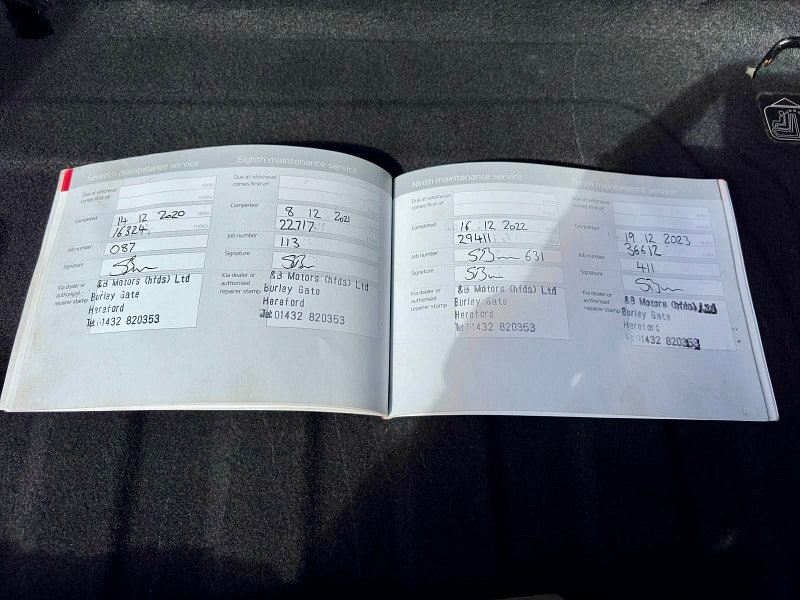 Seventh maintenance service
Due at whichever comes first of
date
miles
Completed
14 12 2020 date
16324 miles
Job number
087
Signature
Kia dealer or authorised repairer stamp
&B Motors (hfds) Ltd
Burley Gate
Hereford
Tel: 01432 820353
Eighth maintenance service
Due at whichever comes first of
date
miles
Completed
8 12 2021
22717 miles
Job number
113
Signature
Kia dealer or authorised repairer stamp
&B Motors (hfds) Ltd
Burley Gate
Hereford
Tel: 01432 820353
Ninth maintenance service
Due at whichever comes first of
date
miles
Completed
16 12 2022 date
29411 miles
Job number
631
Signature
Kia dealer or authorised repairer stamp
&B Motors (hfds) Ltd
Burley Gate
Hereford
Tel: 01432 820353
Tenth maintenance service
Due at whichever comes first of
date
miles
Completed
19 12 2023 date
36612 miles
Job number
411
Signature
Kia dealer or authorised repairer stamp
&B Motors (hfds) Ltd
Burley Gate
Hereford
01432 820353